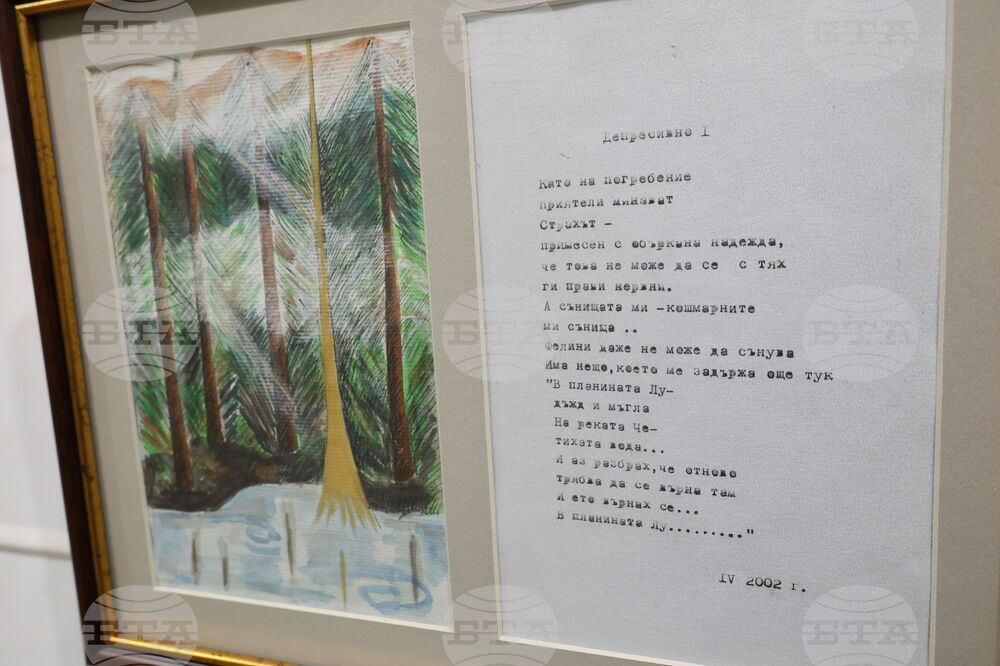 Депресивно I
Като на погребение
приятели минават
Страхът -
примесен с объркана надежда,
че това не може да се с тях
ги прави нервни.
А сънищата ми -кошмарните
ми сънища ..
Фелини даже не може да сънува
Има нещо,което ме задържа още тук
"В планината Лу-
дъжд и мъгла
На реката Че-
тихата вода...
И аз разбрах,че отново
трябва да се върна там
И ето върнах се...
В планината Лу........."
IV 2002 г.
БТА
БТА
БТА
БТА
БТА
БТА
БТА
БТА
БТА